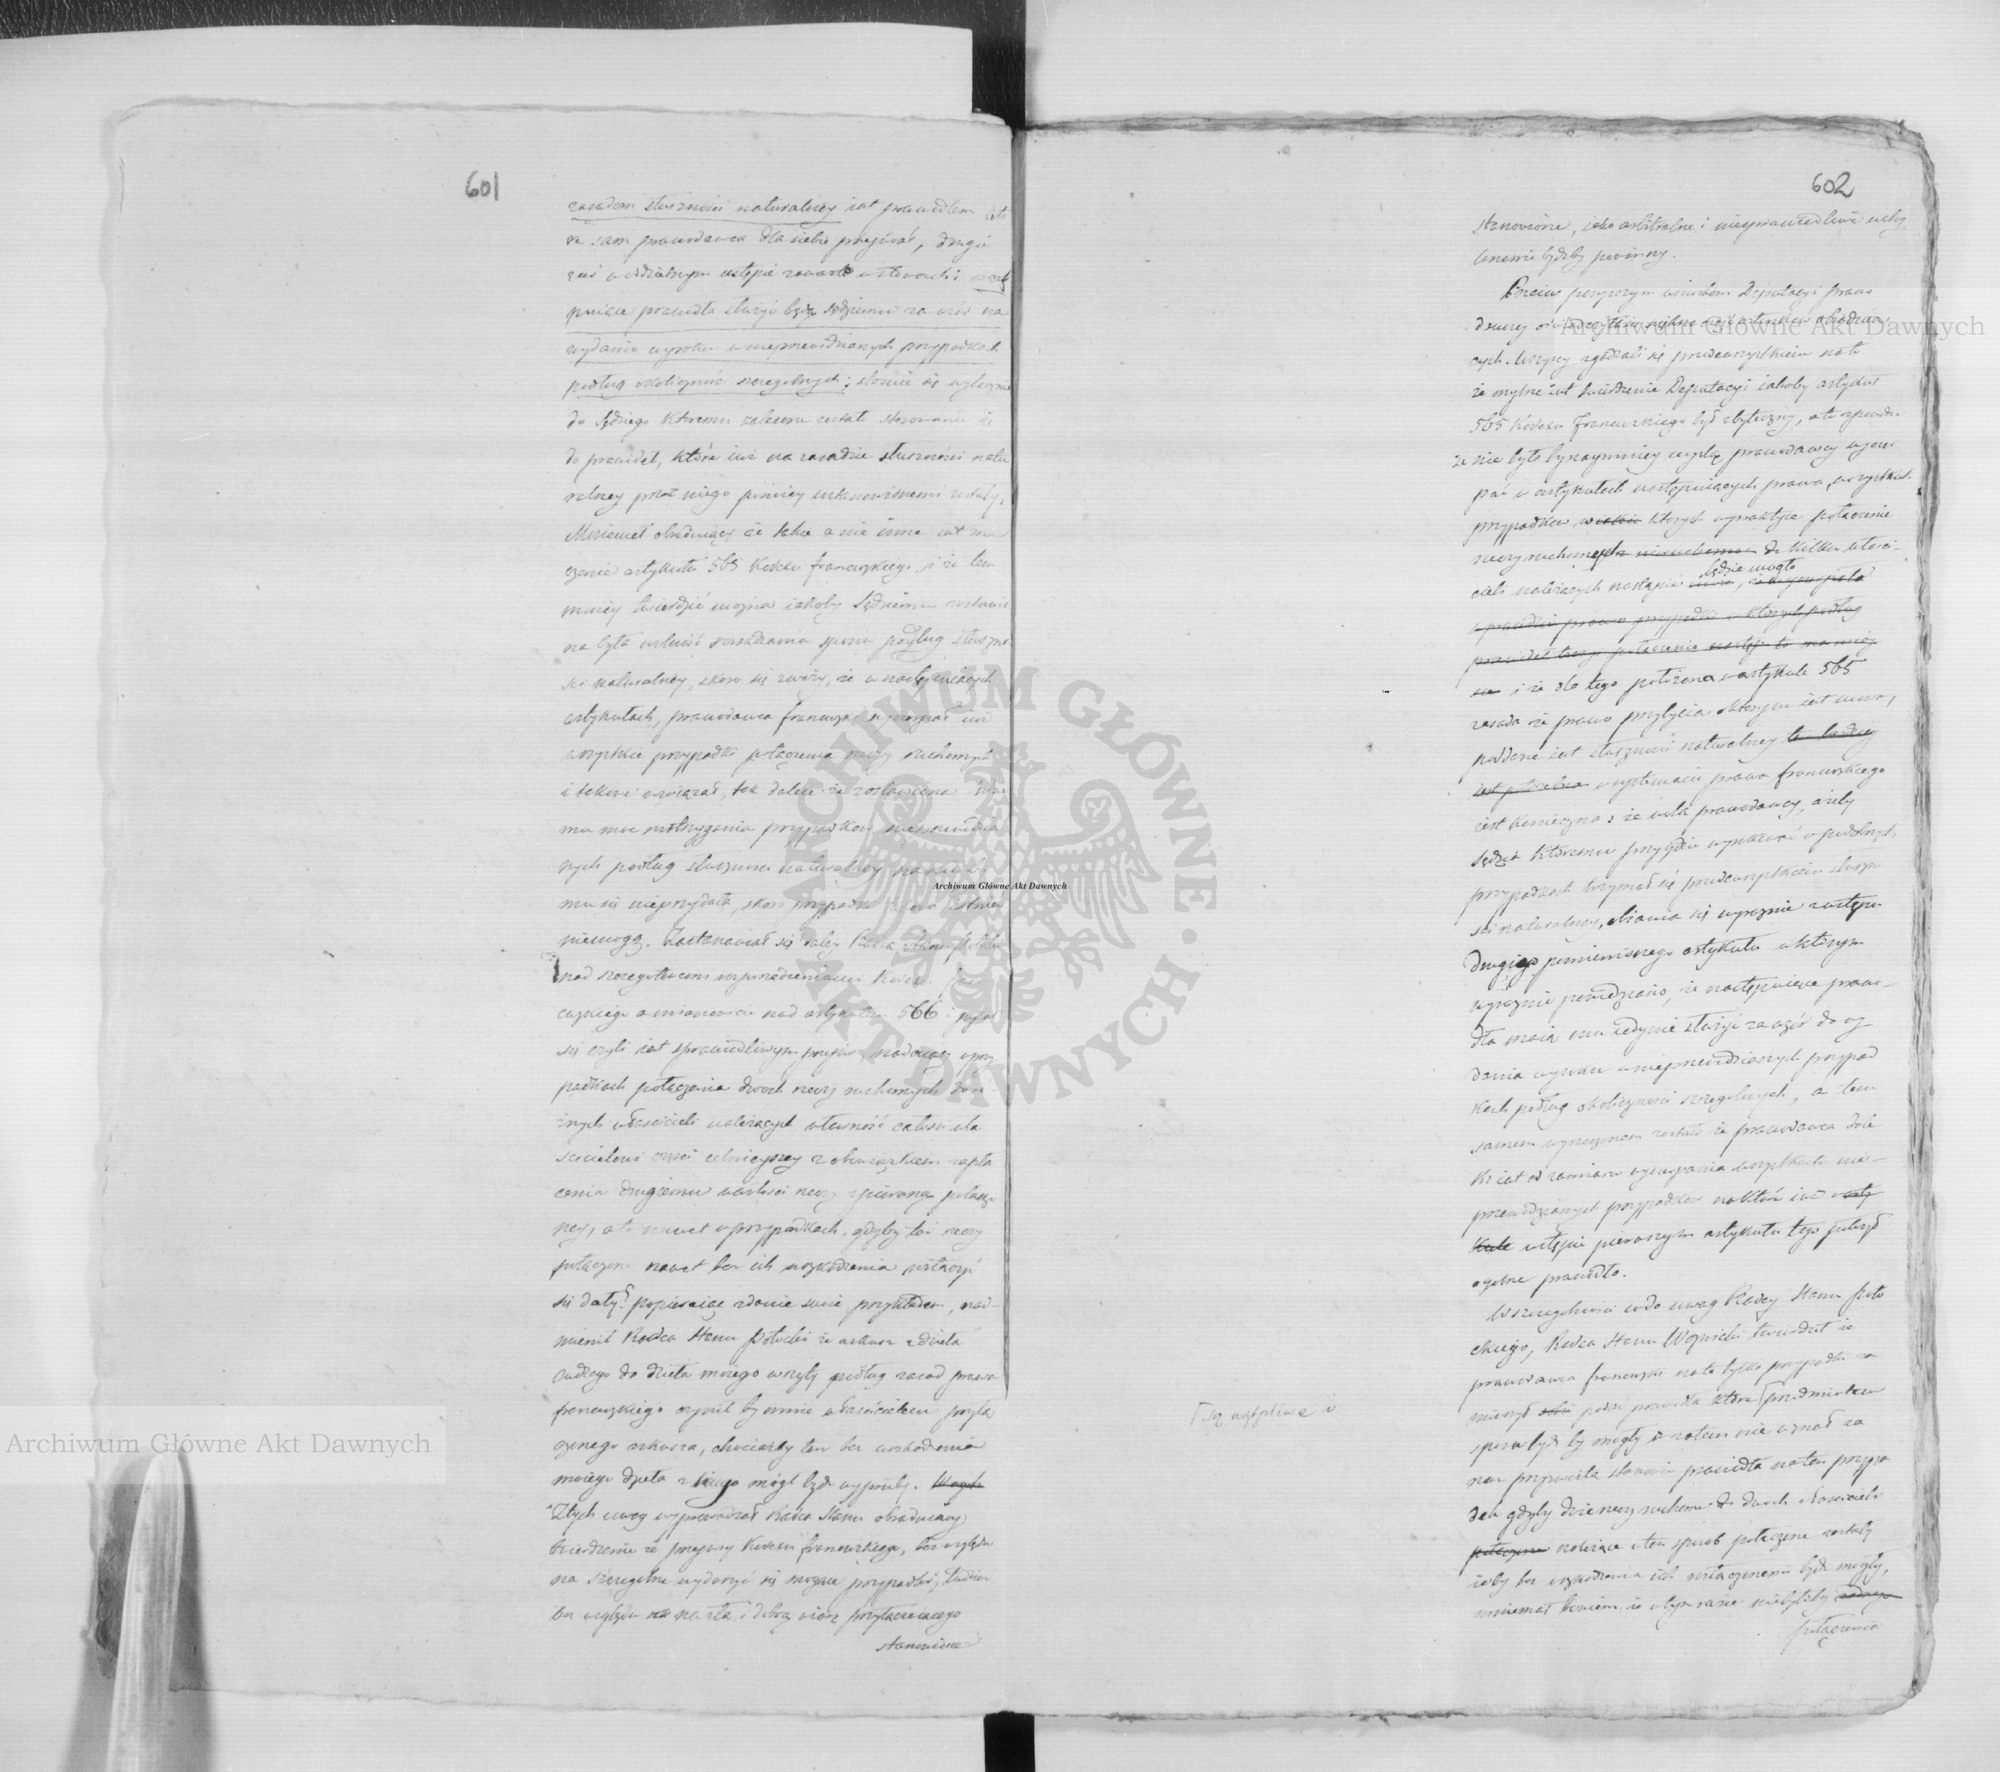 601
zasadom słuszności naturalney iest prawidłem
że sam prawodawca dla siebie przyjmował, drugie
zaś w oddzielnym ustępie zawarte w słowach:
pujące prawidła służyć będą sędziemu za wzór na
wydanie wyroku w nieprzewidzianych przypadkach
podług okoliczności szczególnych; stosuie się wyłącznie
do Sędziego któremu zalecone zostało stosowanie
do prawideł, które już na zasadzie słuszności natu
ralney przez niego poniżey ustanowionemi zostały.
Mniemał obradujący że takie a nie inne iest zna
czenie artykułu 565 Kodexu francuzkiego, i że tem
mniey twierdzić można iakoby Sędziemu zostawio
na była wolność rozsądzania sporu podług słuszno
ści naturalney, skoro się zważy, że w następuiących
artykułach, prawodawca francuzki wyczerpał iuż
wszystkie przypadki połączenia rzeczy ruchomych
i takowe rozwiązał, tak dalece że zostawiona
mu moc rozstrzygania przypadków nieprzewidzia
nych podług słuszności naturalney
mu się nieprzydała, skoro przypadki
niemogą. Zastanawiał się daley Radca Stanu
nad szczegółowem rozporządzeniem Kodexu
cuzkiego a mianowicie nad artykułem 566 i pytał
się czyli iest sprawiedliwym przepis, nadaiący w przy
padkach połączenia dwóch rzeczy ruchomych do
żnych właścicieli należących własność całości wła
ścicielowi części celnieyszey z obowiązkiem zapła
cenia drugiemu wartości rzeczy z pierwszą połączo
ney, a to nawet w przypadkach, gdyby te rzeczy
połączone nawet bez ich uszkodzenia rozłączyć
się dały? popieraiąc zdanie swoie przykładem, nad-
mienił Radca Stanu Potocki że arkusz z dzieła
cudzego do dzieła moiego wszyty podług zasad prawa
francuzkiego czynił by mnie właścicielem przyłą
czonego arkusza, chociażby ten bez uszkodzenia
moiego dzieła z niego mógł bydź wypruty.
Z tych uwag wyprowadzał Radca Stanu obraduiący
twierdzenie że przepisy Kodexu francuzkiego, bez względu
na szczególne wydarzyć się mogące przypadki, tudzież
bez względu na na złą i dobrą wiarę przyłączaiącego
stanowione
602
stanowione, iako arbitralne i niesprawiedliwe uchy
lonemi bydźby powinny.
Przeciw powyższym wnioskom Deputacyi prawo
dawczey oświadczyło się wielu z członków obraduią
cych. Wszyscy zgadzali się przedewszystkiem na to
że mylne iest twierdzenie Deputacyi iakoby artykuł
565 Kodexu francuzkiego był zbyteczny, a to z powodu
że nie było bynaymniey myślą prawodawcy wyczer
pać w artykułach następuiących prawa, wszystkich
przypadków, w których w praktyce połączenie
rzeczy ruchomych do kilku właści-
cieli należących nastąpić będzie mogło
i że dla tego położona w artykule 565
zasada że prawo przybycia o którym iest mowa,
poddane iest słuszności naturalney
w systemacie prawa francuzkiego
iest konieczna: że wolą prawodawcy, ażeby
Sędzia któremu przyydzie wyrokować w podobnych
przypadkach trzymał się przedewszystkiem słuszno
ści naturalney, obiawia się wyraźnie z ustępu
drugiego pomienionego artykułu w którym
wyraźnie powiedziano, że następuiące prawi-
dła maią mu iedynie służyć za wzór do wy
dania wyroku w nieprzewidzianych przypad
kach podług okoliczności szczególnych, a tem
samem wyrzeczonem zostało że prawodawca dale
ki iest od zamiaru wyczerpania wszystkich nie-
przewidzianych przypadków na które iuż
ustępie pierwszym artykułu tego położył
ogólne prawidło.
W szczególności co do uwag Radcy Stanu Poto
ckiego, Radca Stanu Woznicki twierdził że
prawodawca francuzki na te tylko przypadki za
mierzył podać prawidła które przedmiotem
sporu bydź by mogły a zatem nie uznał za
rzecz przyzwoitą stanowić prawidła na ten przypa
dek gdyby dwie rzeczy ruchome do dwóch właścicieli
należące w ten sposób połączone zostały
iżby bez uszkodzenia ich rozłączonemi bydź mogły,
mniemał bowiem, że w tym razie niebyłoby
połączenia
Archiwum Główne Akt Dawnych
Archiwum Główne Akt Dawnych
Archiwum Główne Akt Dawnych
ARCHIWUM GŁÓWNE AKT DAWNYCH